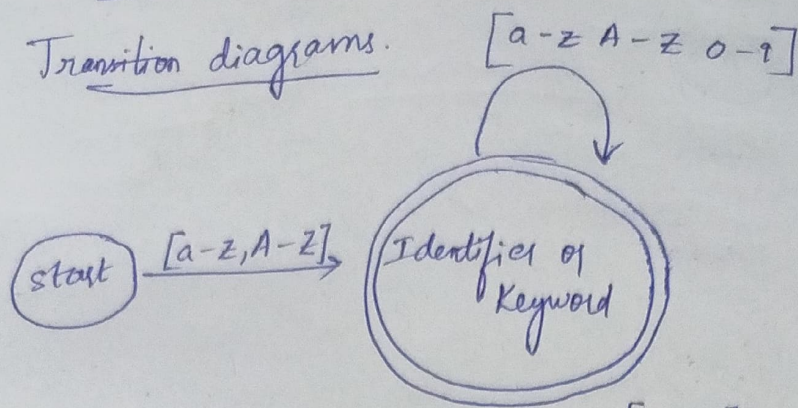 Transition diagrams.
[a-z A-Z 0-9]
start
[a-z, A-Z]
Identifier or
Keyword